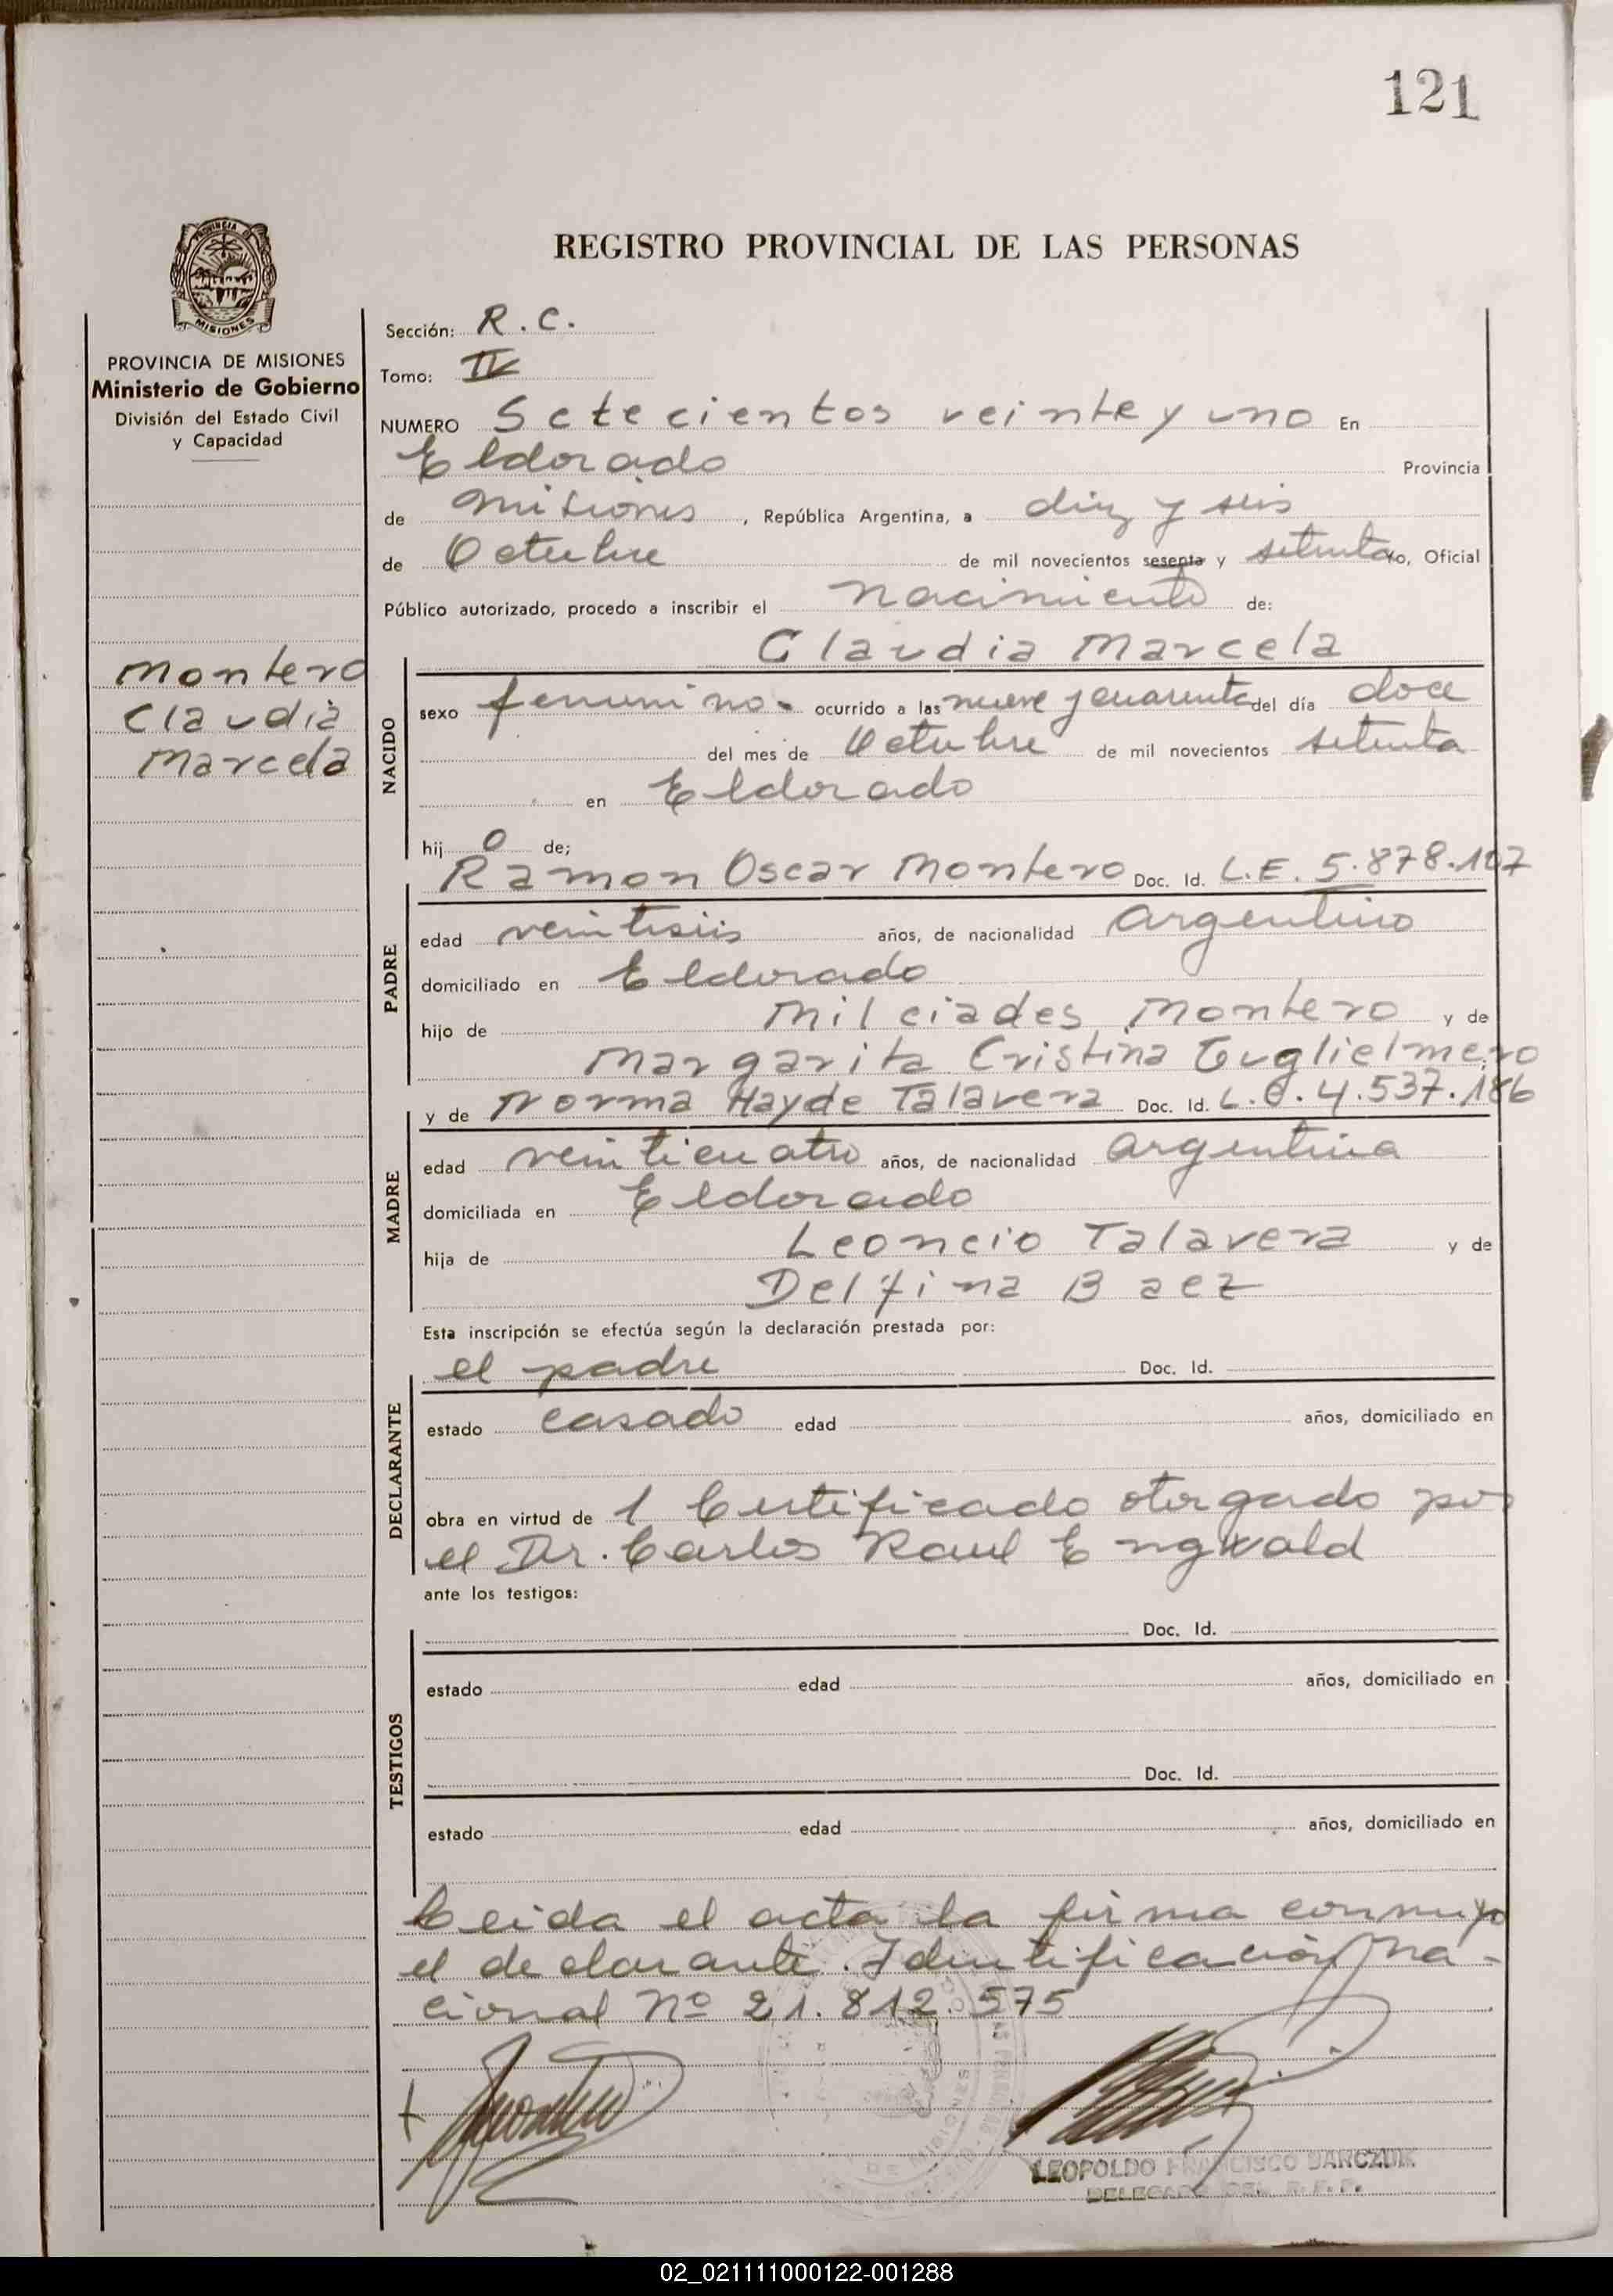 121
PROVINCIA
MISIONES
PROVINCIA DE MISIONES
Ministerio de Gobierno
División del Estado Civil
y Capacidad
Montero
Claudia
Marcela
REGISTRO PROVINCIAL DE LAS PERSONAS
Sección: R.C.
Tomo: IV
NUMERO Setecientos veinte y uno En
Eldorado Provincia
de Misiones, República Argentina, a diez y seis
de Octubre de mil novecientos sesenta y setenta yo, Oficial
Público autorizado, procedo a inscribir el nacimiento de:
Claudia Marcela
NACIDO
sexo femenino.- ocurrido a las nueve y cuarenta del día doce
del mes de Octubre de mil novecientos setenta
en Eldorado
hij o de;
Ramon Oscar Montero Doc. Id. L.E. 5.878.107
PADRE
edad veintiseis años, de nacionalidad argentino
domiciliado en Eldorado
hijo de Milciades Montero y de
Margarita Cristina Guglielmero
y de Norma Hayde Talavera Doc. Id. L.C. 4.537.186
MADRE
edad veinticuatro años, de nacionalidad argentina
domiciliada en Eldorado
hija de Leoncio Talavera y de
Delfina Baez
Esta inscripción se efectúa según la declaración prestada por:
el padre Doc. Id.
DECLARANTE
estado casado edad años, domiciliado en
obra en virtud de 1 Certificado otorgado por
el Dr. Carlos Raul Engwald
ante los testigos:
Doc. Id.
TESTIGOS
estado edad años, domiciliado en
Doc. Id.
estado edad años, domiciliado en
Leida el acta la firma conmigo
el declarante. Identificación Na-
cional Nº 21.812.575
LEOPOLDO FRANCISCO
DELEGADO DEL R.P.P.
02_021111000122-001288